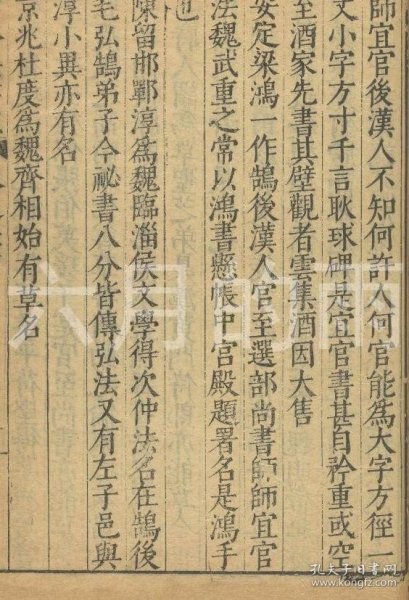 師宜官後漢人不知何許人何官能為大字方徑一
丈小字方寸千言耿球碑是宜官書甚自矜重或空
至酒家先書其壁觀者雲集酒因大售
安定梁鴻一作鵠後漢人官至選部尚書師師宜官
法魏武重之常以鴻書懸帳中宮殿題署名是鴻手
也
陳留邯鄲淳為魏臨淄侯文學得次仲法名在鵠後
毛弘鵠弟子今祕書八分皆傳弘法又有左子邑與
淳小異亦有名
京兆杜度為魏齊相始有草名
六月的雨
孔夫子旧书网